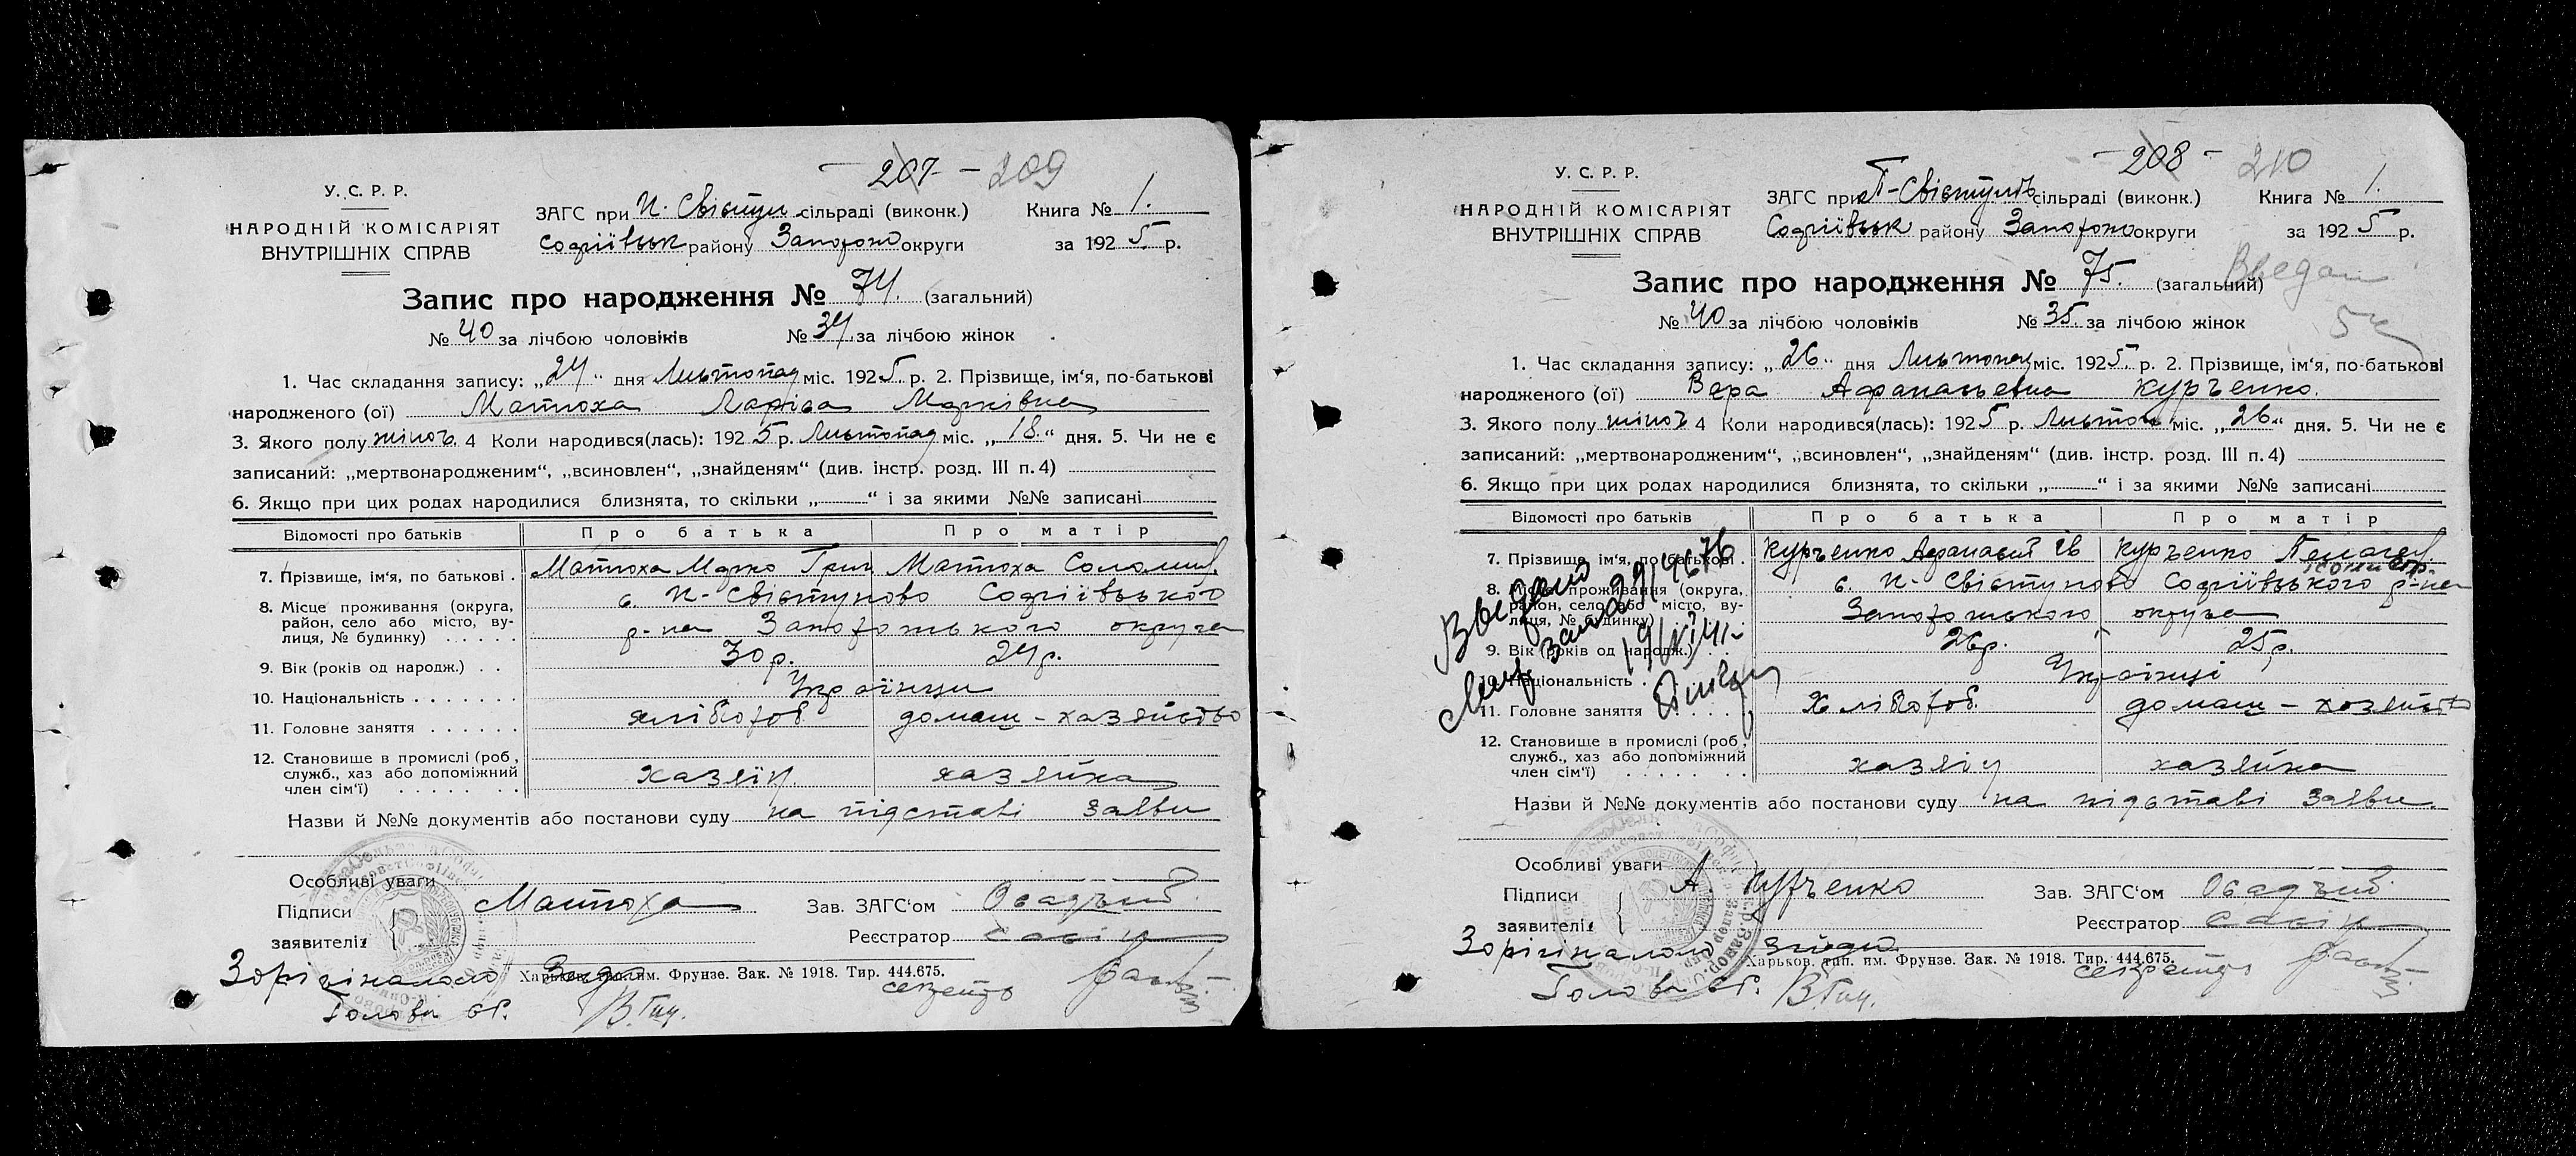 207 - 209
У. С. Р. Р.
НАРОДНІЙ КОМІСАРІЯТ
ВНУТРІШНІХ СПРАВ
ЗАГС при П. Свістун. сільраді (виконк.) Книга № 1.
Софіївськ району Запорожо округи за 1925 р.
Запис про народження № 74. (загальний)
№ 40 за лічбою чоловіків № 34 за лічбою жінок
1. Час складання запису: „24“ дня Листопад міс. 1925 р. 2. Прізвище, ім'я, по-батькові
народженого (ої) Матюха Лариса Марківна
3. Якого полу жіноч. 4 Коли народився(лась): 1925 р. Листопад міс. „18.“ дня. 5. Чи не є
записаний: „мертвонародженим“, „всиновлен“, „знайденям“ (див. інстр. розд. III п. 4)
6. Якщо при цих родах народилися близнята, то скільки „ “ і за якими №№ записані
Відомості про батьків Про батька Про матір
7. Прізвище, ім'я, по батькові . Матюха Марко Григ Матюха Соломия
8. Місце проживання (округа, район, село або місто, вулиця, № будинку) с. П-Свістуново Софіївського
р-на Запорожького округа
9. Вік (років од народж.) . . 30 р. 24 р.
10. Національність . . . . . . . Українци
11. Головне заняття . . . . . . хлібороб домаш - хазяйство
12. Становище в промислі (роб., служб., хаз або допоміжний член сім'ї) хазяїн хазяйка
Назви й №№ документів або постанови суду на підставі заяви
Особливі уваги
Підписи
заявителів Матюха
Зав. ЗАГС'ом Осадчий
Реєстратор
З орігіналом
Харьков. тип. им. Фрунзе. Зак. № 1918. Тир. 444.675.
Голова с.
208 - 210
У. С. Р. Р.
НАРОДНІЙ КОМІСАРІЯТ
ВНУТРІШНІХ СПРАВ
ЗАГС при П-Свістунов сільраді (виконк.) Книга № 1.
Софіївськ району Запорожо округи за 1925 р.
Запис про народження № 75. (загальний)
№ 40 за лічбою чоловіків № 35. за лічбою жінок
1. Час складання запису: „26“ дня Листопад міс. 1925 р. 2. Прізвище, ім'я, по-батькові
народженого (ої) Вера Афанасьевна Курченко.
3. Якого полу жіноч 4 Коли народився(лась): 1925 р. Листоп міс. „26“ дня. 5. Чи не є
записаний: „мертвонародженим“, „всиновлен“, „знайденям“ (див. інстр. розд. III п. 4)
6. Якщо при цих родах народилися близнята, то скільки „ “ і за якими №№ записані
Відомості про батьків Про батька Про матір
7. Прізвище, ім'я, по-батькові . Курченко Афанасий Курченко Пелагея
8. Місце проживання (округа, район, село або місто, вулиця, № будинку) с. П-Свістуново Софіївського р-на
Запорожького округа
9. Вік (років од народж.) 26 р. 25 р.
10. Національність . Українці
11. Головне заняття Хлібороб. домаш - хозяйство
12. Становище в промислі (роб., служб., хаз або допоміжний член сім'ї) хазяїн хазяйка
Назви й №№ документів або постанови суду на підставі заяви
Особливі уваги
Підписи
заявителів А. Курченко
Зав. ЗАГС'ом Осадчий
Реєстратор
З орігіналом згідно
Харьков. тип. им. Фрунзе. Зак. № 1918. Тир. 444.675.
Голова с. секретарь